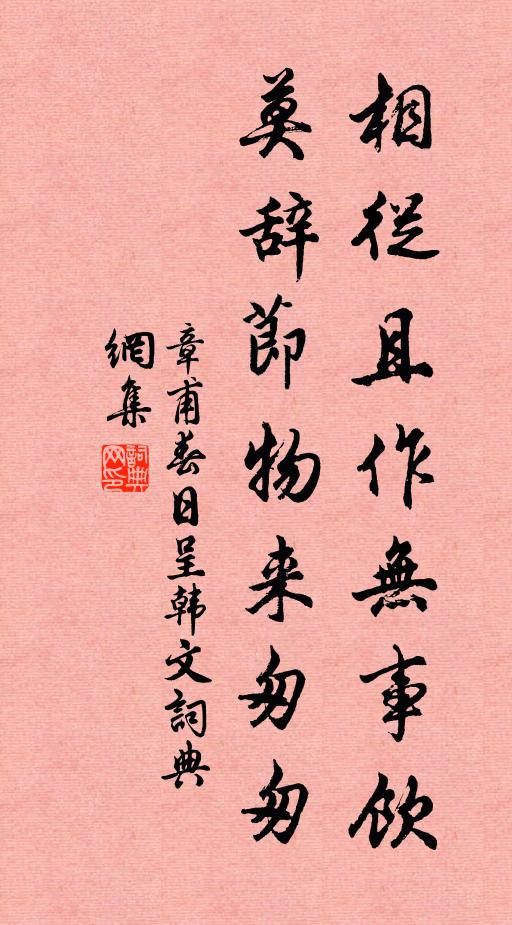 相從且作無事飲
莫辞節物来匆匆
章甫春日呈韩文詞典
網集
詞典
网印